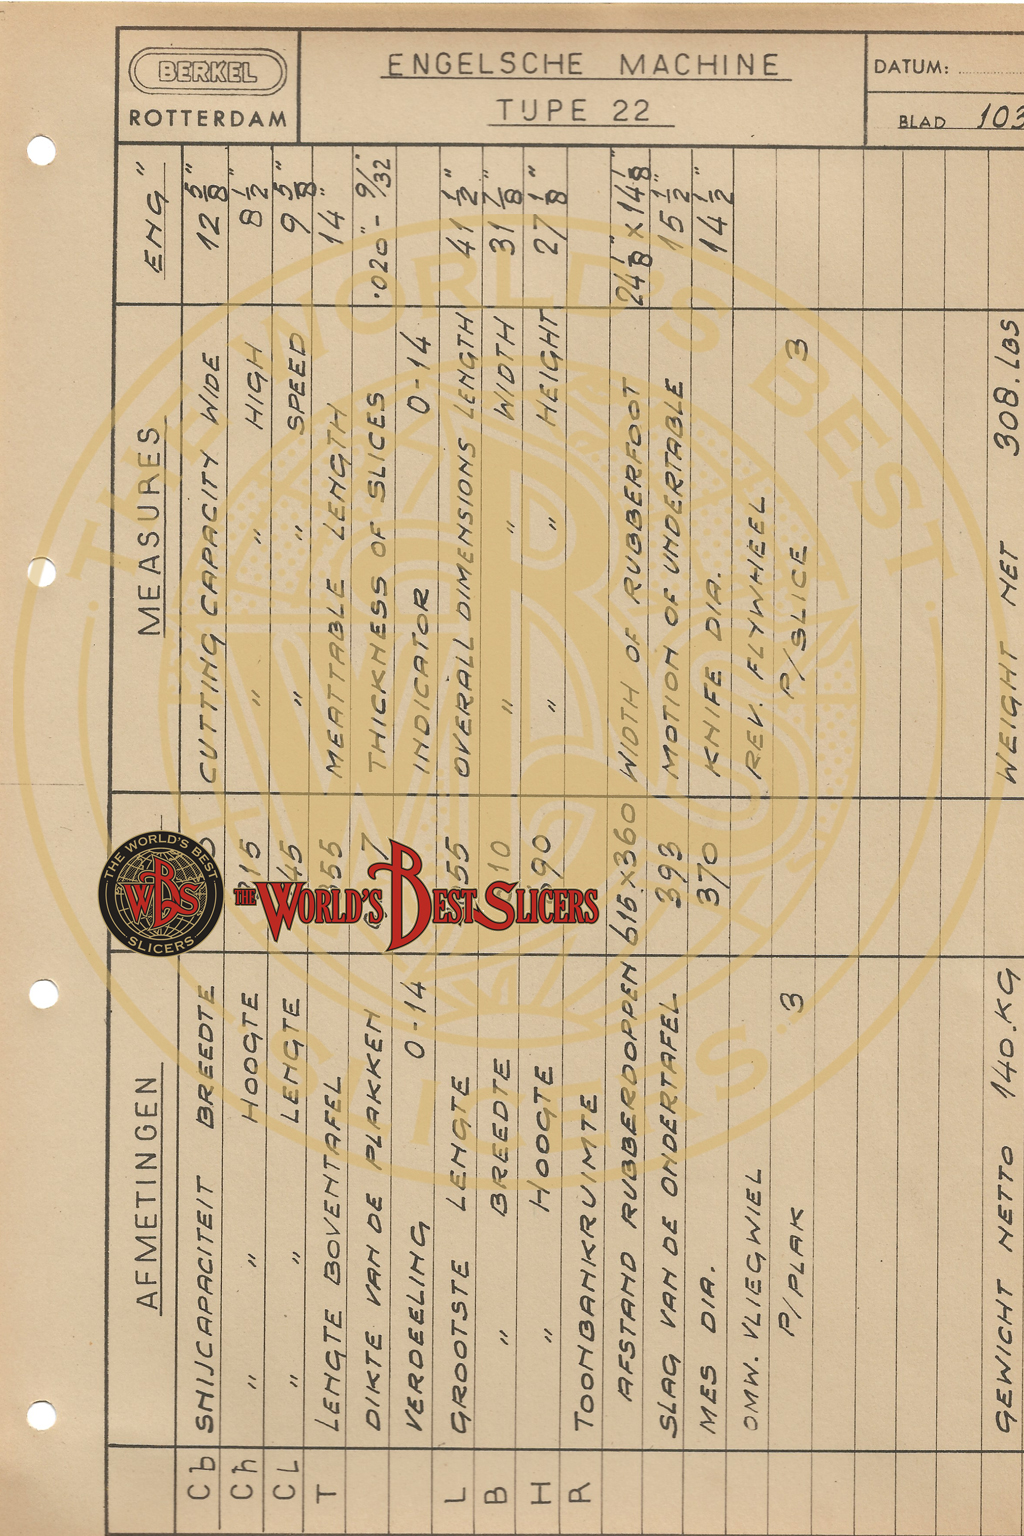 BERKEL
ROTTERDAM
ENGELSCHE MACHINE
TYPE 22
DATUM:
BLAD 103
AFMETINGEN MEASURES ENG"
Cb SNIJCAPACITEIT BREEDTE CUTTING CAPACITY WIDE 12 5/8"
Ch " " HOOGTE 215 " " HIGH 8 1/2"
CL " " LENGTE 45 " " SPEED 9 5/8"
T LENGTE BOVENTAFEL 355 MEATTABLE LENGTH 14"
DIKTE VAN DE PLAKKEN 7 THICKNESS OF SLICES .020" - 9/32"
VERDEELING 0-14 INDICATOR 0-14
L GROOTSTE LENGTE 55 OVERALL DIMENSIONS LENGTH 41 1/2"
B " BREEDTE 810 " " WIDTH 31 7/8"
H " HOOGTE 690 " " HEIGHT 27 1/8"
R TOONBANKRUIMTE
AFSTAND RUBBERDOPPEN 615 x 360 WIDTH OF RUBBERFOOT 24 1/8" x 14 1/8"
SLAG VAN DE ONDERTAFEL 393 MOTION OF UNDERTABLE 15 1/2"
MES DIA. 370 KNIFE DIA. 14 1/2"
OMW. VLIEGWIEL REV. FLYWHEEL
P/PLAK 3 P/SLICE 3
GEWICHT NETTO 140.KG WEIGHT NET 308.LBS
THE WORLD'S BEST
WBS
SLICERS
THE WORLD'S BEST SLICERS
THE WORLD'S BEST
WBS
SLICERS